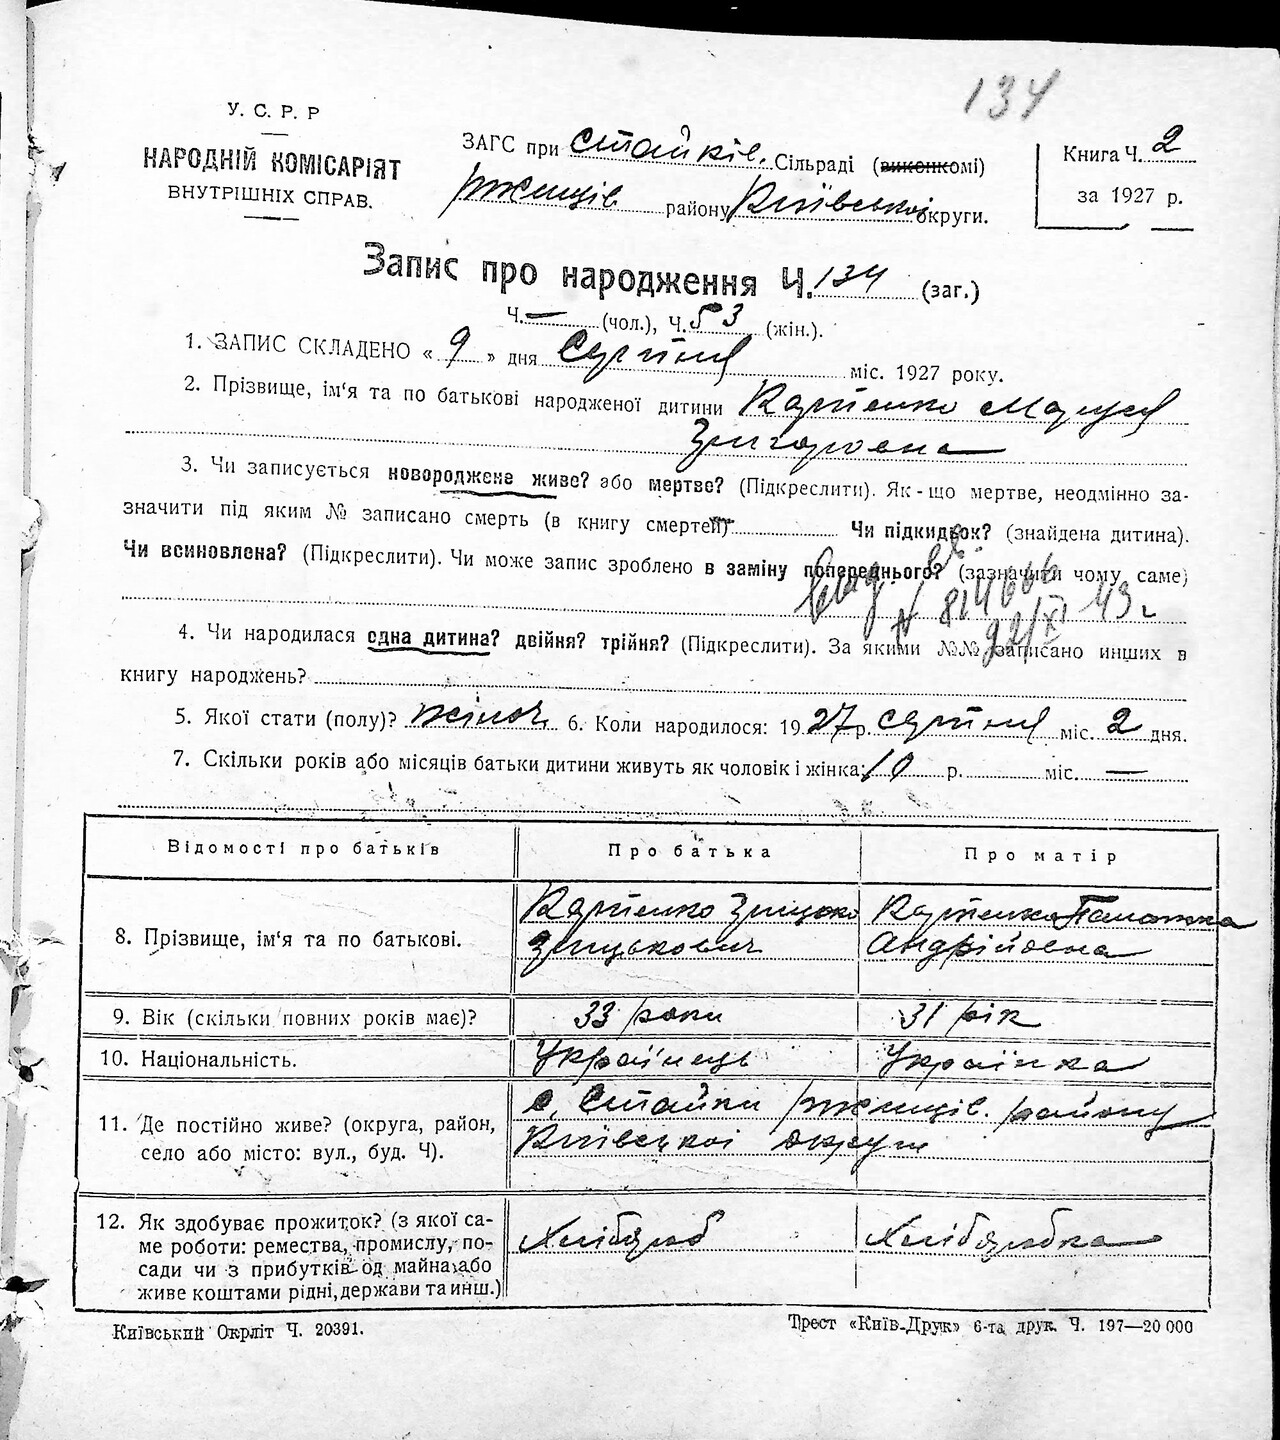 134
У. С. Р. Р
НАРОДНІЙ КОМІСАРІЯТ
ВНУТРІШНІХ СПРАВ.
ЗАГС при Стайків. Сільраді (виконкомі)
Ржищів району Київської округи.
Книга Ч. 2
за 1927 р.
Запис про народження Ч. 134 (заг.)
Ч. — (чол.), Ч. 53 (жін.).
1. ЗАПИС СКЛАДЕНО « 9 » дня Серпня міс. 1927 року.
2. Прізвище, ім‘я та по батькові народженої дитини Карпенко Марія
Григоровна
3. Чи записується новороджене живе? або мертве? (Підкреслити). Як-що мертве, неодмінно за-
значити під яким № записано смерть (в книгу смертей) Чи підкидьок? (знайдена дитина).
Чи всиновлена? (Підкреслити). Чи може запис зроблено в заміну попереднього? (зазначити чому саме)
N 814666
22/XI 43 г
4. Чи народилася одна дитина? двійня? трійня? (Підкреслити). За якими №№ записано инших в
книгу народжень?
5. Якої стати (полу)? жіноч. 6. Коли народилося: 1927 р. серпня міс. 2 дня.
7. Скільки років або місяців батьки дитини живуть як чоловік і жінка: 10 р. міс. —
Відомості про батьків Про батька Про матір
8. Прізвище, ім‘я та по батькові.
Карпенко Грицько
Грицькович
Карпенко Палажка
Андрійовна
9. Вік (скільки повних років має)? 33 роки 31 рік
10. Національність. Українець Українка
11. Де постійно живе? (округа, район,
село або місто: вул., буд. Ч).
с. Стайки Ржищів. району
Київської округи
12. Як здобуває прожиток? (з якої са-
ме роботи: ремества, промислу, по-
сади чи з прибутків од майна або
живе коштами рідні, держави та инш.)
Хлібороб Хліборобка
Київський Окрліт Ч. 20391.
Трест «Київ-Друк» 6-та друк. Ч. 197—20 000